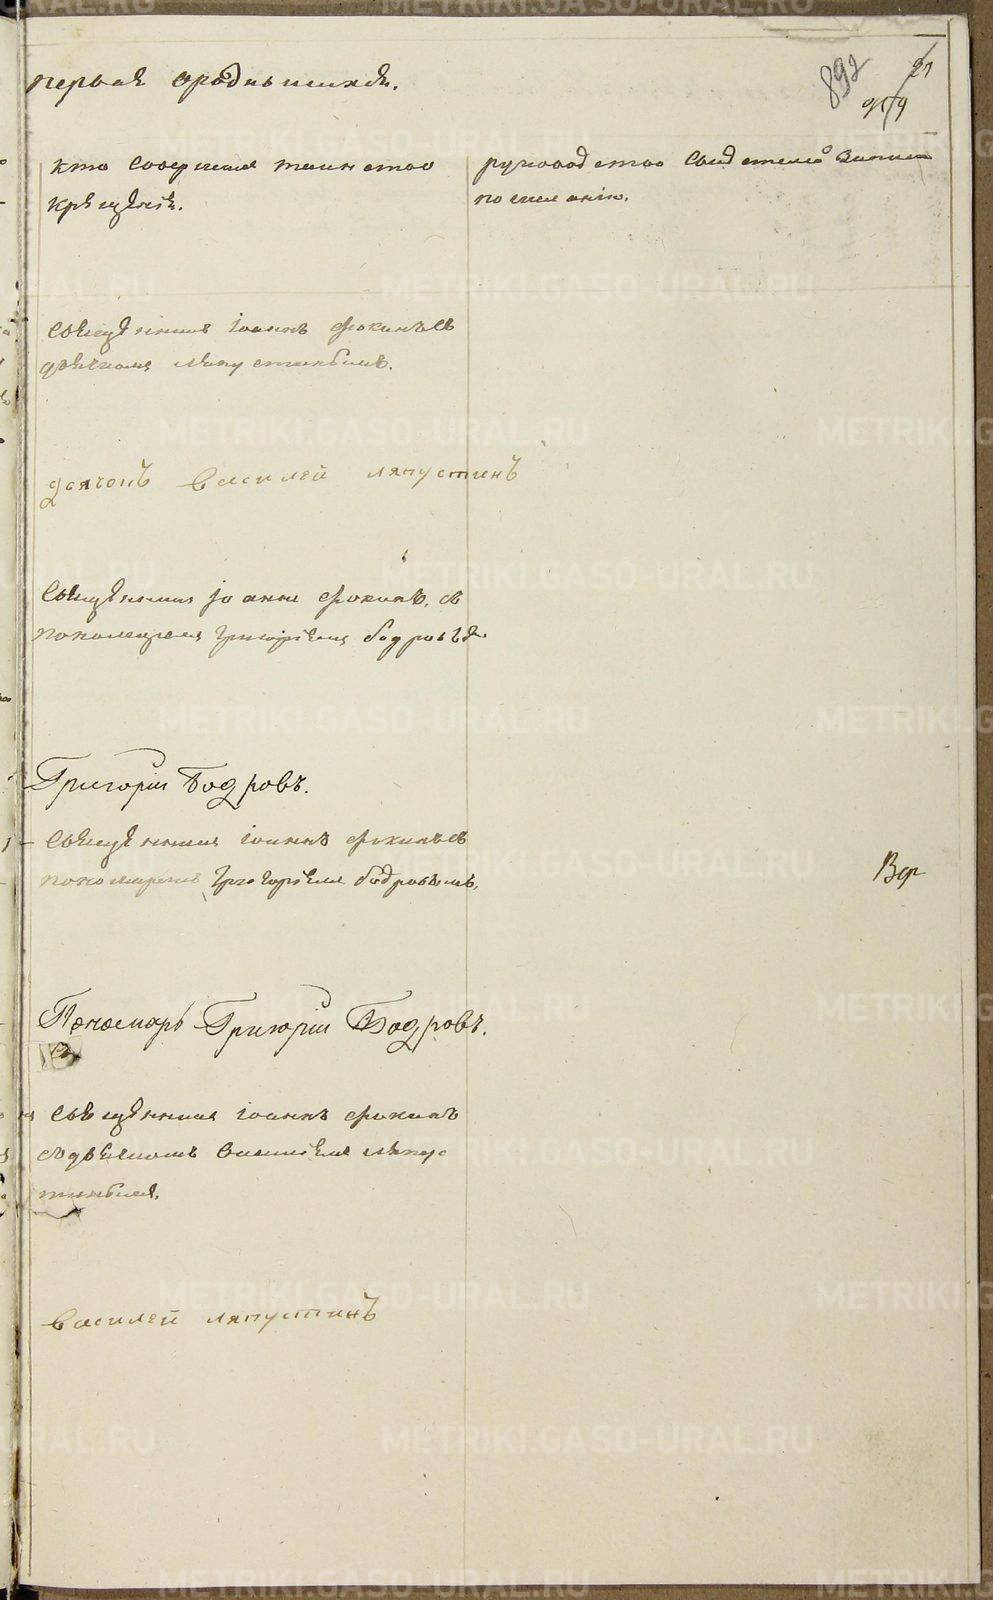 первая о родившихся.
892
21
914
кто совершал таинство
крещенія.
рукоприкладство свидетелей записи
по желанію.
Священникъ Іоаннъ Фокинъ съ
дьячкомъ Ляпустинымъ.
Дьячокъ Василей Ляпустинъ
Священникъ Іоаннъ Фокинъ, съ
пономаремъ Григоріемъ Бодровымъ
Григорій Бодровъ.
Священникъ Іоаннъ Фокинъ съ
пономаремъ Григоріемъ Бодровымъ.
Вер
Пономарь Григорій Бодровъ.
Священникъ Іоаннъ Фокинъ
съ дьячкомъ Василіемъ Ляпус
тинымъ.
Василей Ляпустинъ
METRIKI.GASO-URAL.RU